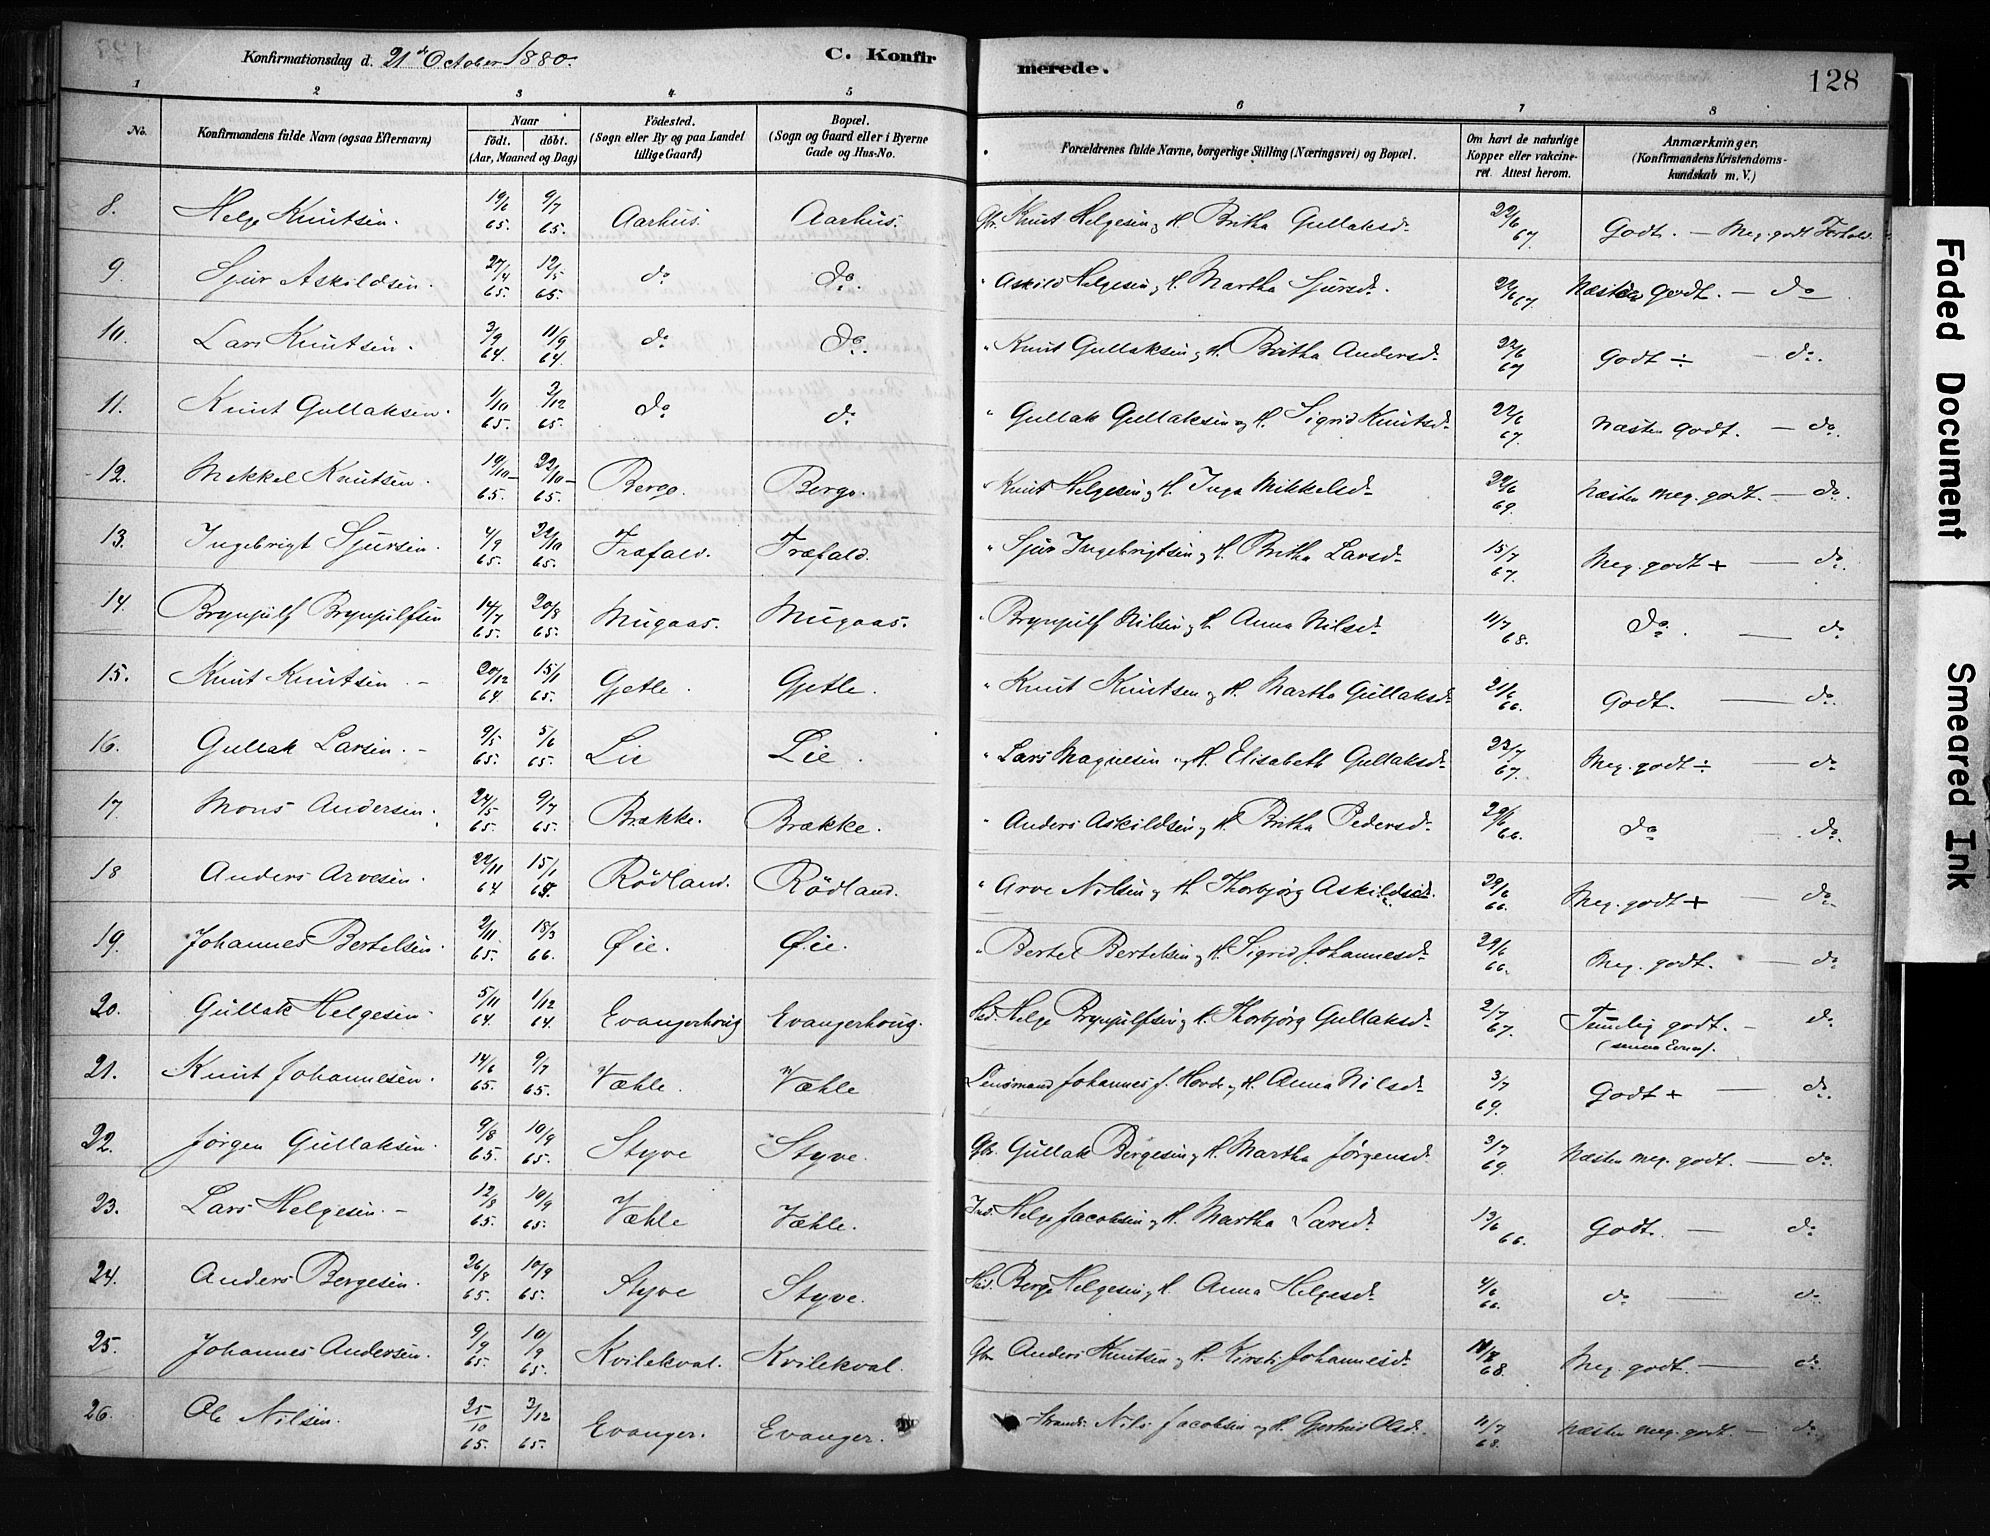 Konfirmationsdag d. 21de October 1880.
C. Konfirmerede.
128
1 2 3 4 5 6 7 8
No.
Konfirmandens fulde Navn (ogsaa Efternavn)
Naar
født. døbt.
(Aar, Maaned og Dag)
Födested.
(Sogn eller By og paa Landet
tillige Gaard)
Bopæl.
(Sogn og Gaard eller i Byerne
Gade og Hus-No.
Forældrenes fulde Navne, borgerlige Stilling (Næringsvei) og Bopæl.
Om havt de naturlige
Kopper eller vakcine-
ret. Attest herom.
Anmærkninger.
(Konfirmandens Kristendoms-
kundskab m. V.)
8. Helge Knutsen. 19/6 65. 9/7 65. Aarhus. Aarhus. Gbr. Knut Helgesen & H. Britha Gullaksdr 22/6 67. Godt. — Meg. godt Forhold.
9. Sjur Askildsen. 27/4 65. 12/5 65. do do. " Askild Helgesen & H. Martha Sjursdr. 22/6 67 Næsten Godt. — do
10. Lars Knutsen. 3/9 64. 11/9 64. do do. " Knut Gullaksen & H. Britha Andersdr 22/6 67 Godt ÷ — do.
11. Knut Gullaksen. 1/10 65. 3/12 65. do do " Gullak Gullaksen & H. Sigrid Knutsdr 22/6 67. Næsten Godt. — do.
12. Mekkel Knutsen. 19/10 65. 22/10 65. Bergo. Bergo. " Knut Helgesen & H. Inga Mikkelsdr 22/6 69. Næsten meg. godt. — do.
13. Ingebrigt Sjursen. 4/9 65. 22/10 65. Træfald. Træfald. " Sjur Ingebrigtsen & H. Britha Larsdr 15/7 67. Meg. godt + — do.
14. Brynjulf Brynjulfsen 14/7 65. 20/8 65. Mugaas. Mugaas. " Brynjulf Nilsen & H. Anna Nilsdr 11/7 68. do. — do
15. Knut Knutsen. 20/12 64. 15/1 65. Gjetle. Gjetle. " Knut Knutsen & H. Martha Gullaksdr 21/6 66. Godt. — do.
16. Gullak Larsen. 9/5 65. 5/6 65. Lie Lie. " Lars Magnesen & H. Elisabeth Gullaksdr 23/7 67. Meg. godt ÷ — do
17. Mons Andersen. 24/5 65. 9/7 65. Brække. Brække. " Anders Askildsen & H. Britha Pedersdr 29/6 66. do — do.
18 Anders Arvesen. 22/11 64 15/1 65. Rødland. Rødland. " Arve Nilsen & H. Thorbjørg Askildsdr. 29/6 66. Meg. godt + — do.
19. Johannes Bertelsen. 2/11 65. 18/3 66. Øie. Øie. " Bertel Bertelsen & H. Sigrid Johannesdr 29/6 66. Meg. godt. — do
20. Gullak Helgesen. 5/11 64. 1/12 64. Evangerhoug Evangerhoug. Hsd. Helge Brynjulfsen & H. Thorbjørg Gullaksdr 2/7 67. Temlig godt. — do.
21. Knut Johannesen. 14/6 65. 9/7 65. Væhle. Væhle Lensmand Johannes J. Horde & H. Anna Nilsdr 3/7 69. Godt + — do.
22. Jørgen Gullaksen. 9/8 65. 10/9 65. Styve Styve. Gbr. Gullak Bergesen & H. Martha Jørgensdr 3/7 69. Næsten meg. godt. — do.
23. Lars Helgesen. 12/8 65. 10/9 65. Væhle Væhle. Ind. Helge Jacobsen & H. Martha Larsdr 13/6 66. Godt. — do
24. Anders Bergesen. 26/8 65. 10/9 65. Styve Styve. Hsd. Berge Helgesen & H. Anna Helgesdr 4/6 66. do — do.
25. Johannes Andersen. 9/9 65. 10/9 65. Kvilekval. Kvilekval. Gbr Anders Knutsen & H. Kirsti Johannesdr 68. Meg. godt. — do
26. Ole Nilsen. 25/10 65. 3/12 65. Evanger. Evanger. Strands. Nils Jacobsen & H. Gjertrud Olsdr. 11/7 68. Næsten meg. godt. — do
Faded Document
Smeared Ink